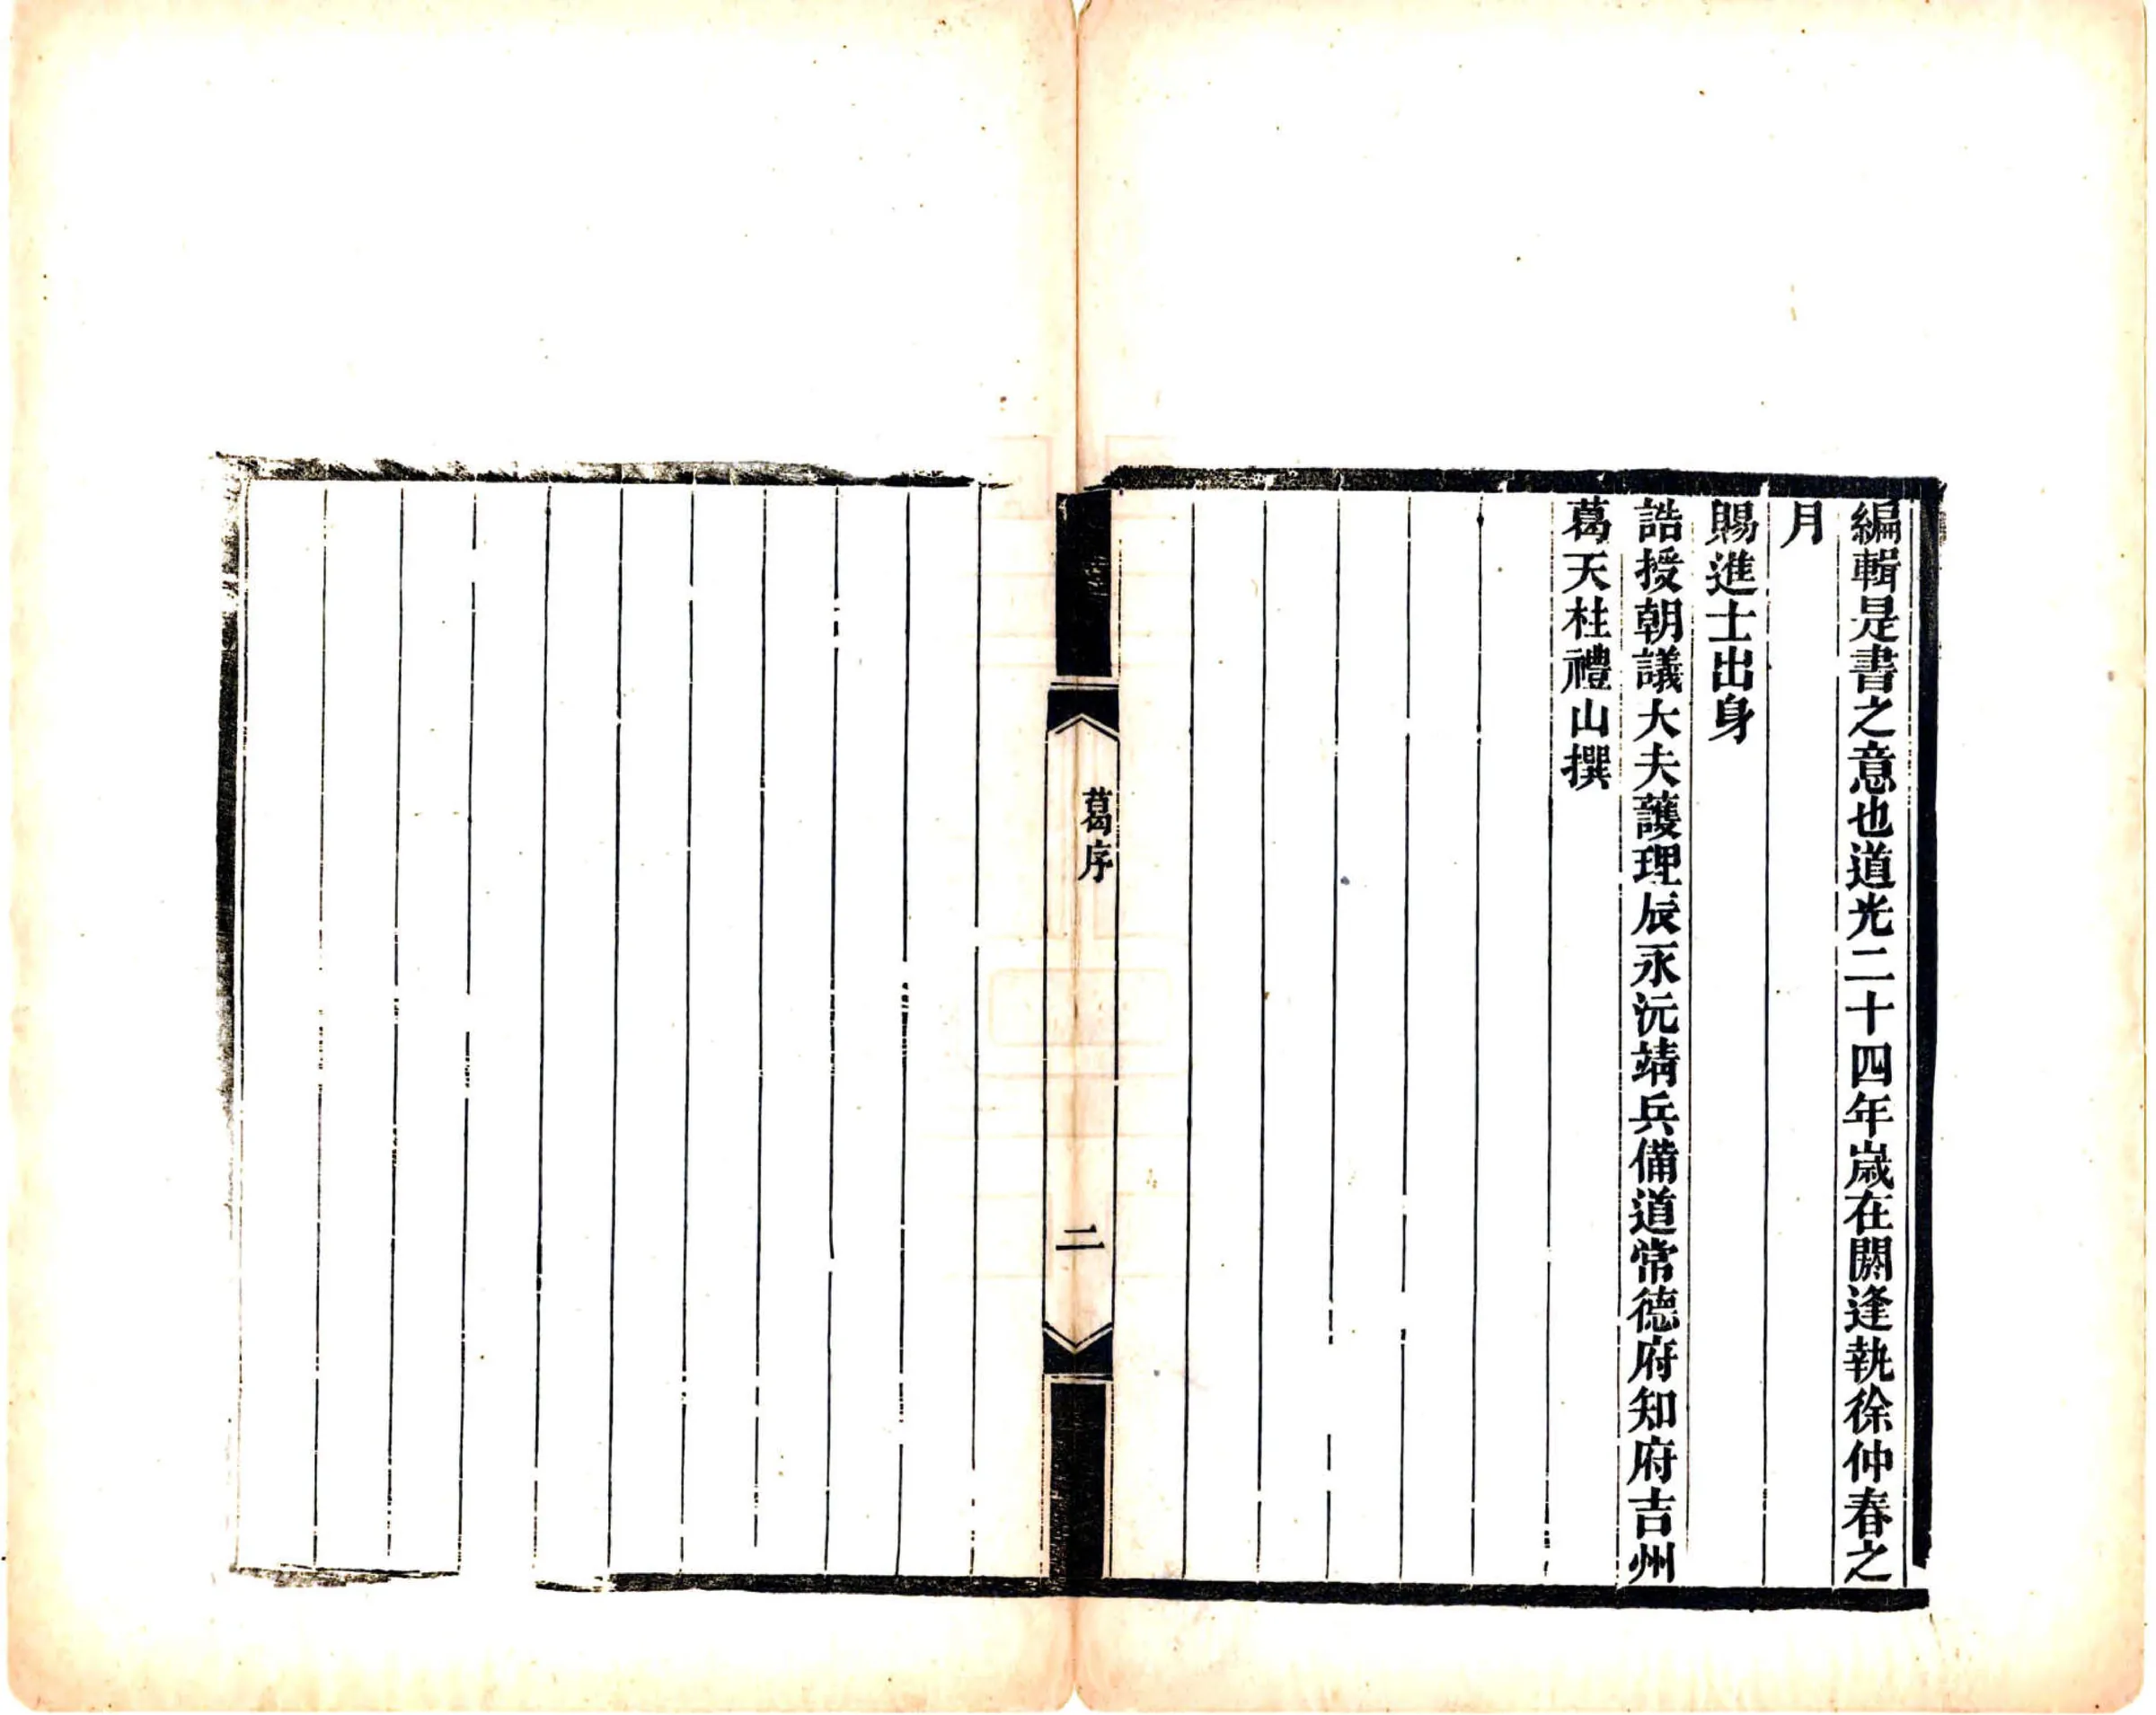 編輯是書之意也道光二十四年歲在閼逢執徐仲春之
月
賜進士出身
誥授朝議大夫護理辰永沅靖兵備道常德府知府吉州
葛天柱禮山撰
葛序
二